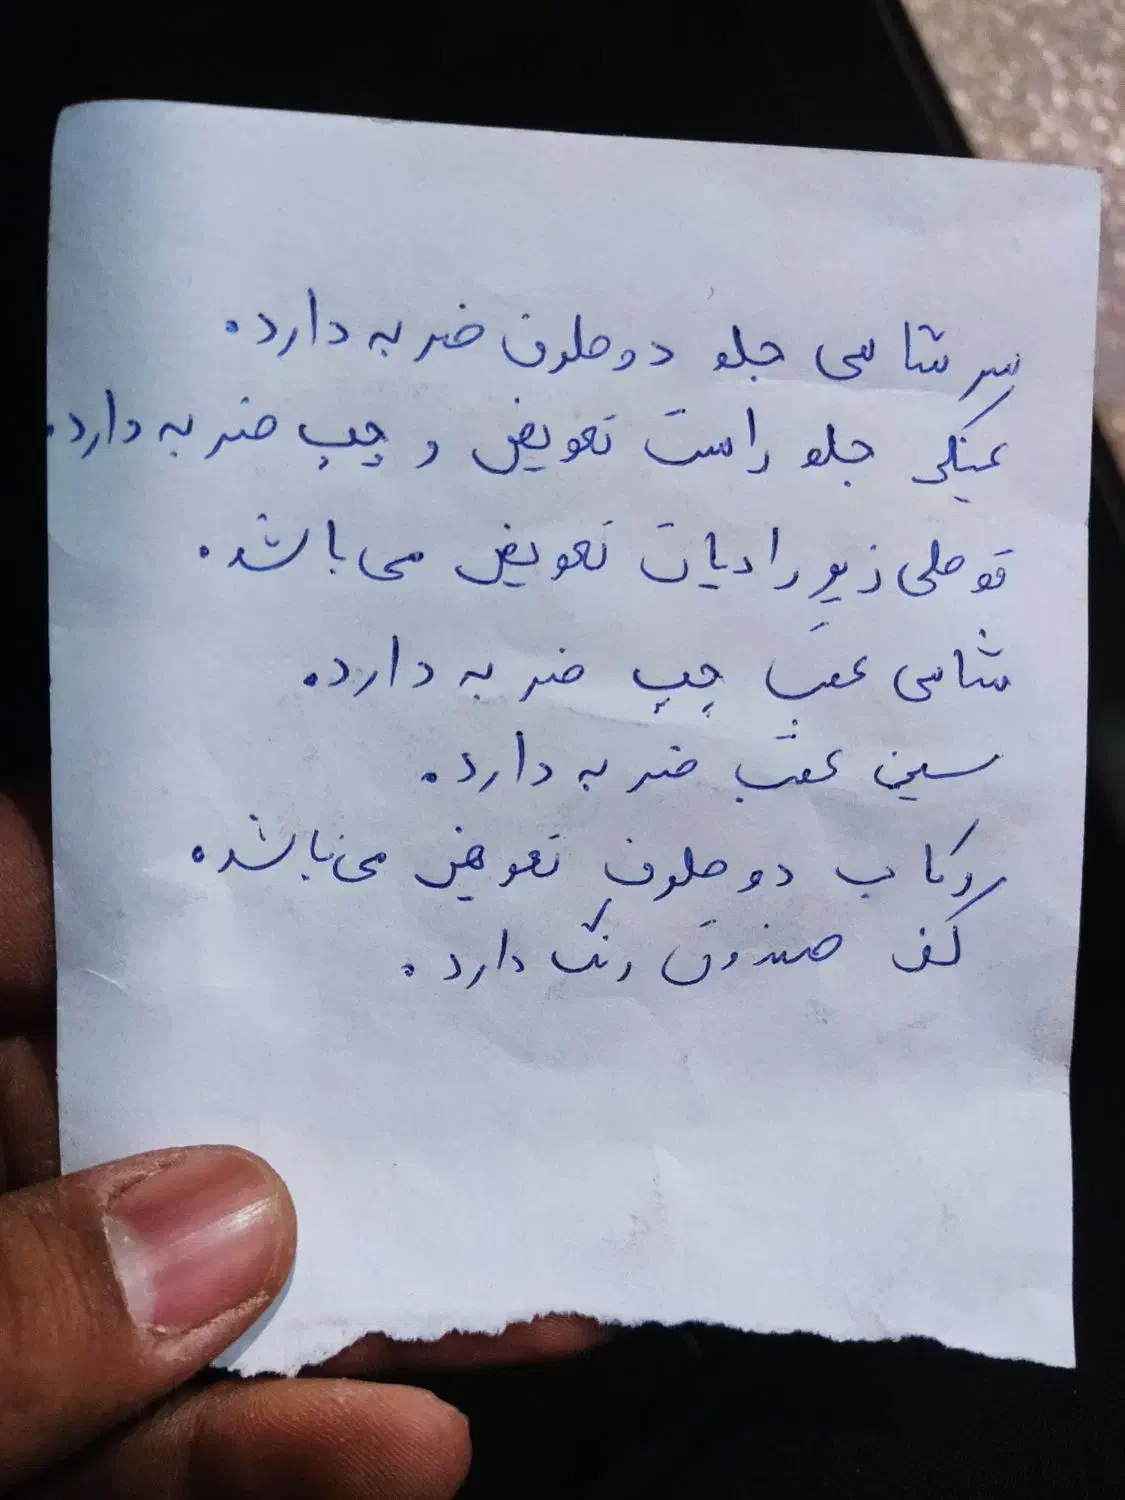 سر شاسی جلو دوطرف ضربه دارد.
عینکی جلو راست تعویض و چپ ضربه دارد.
قوطی زیر رادیات تعویض می باشد.
شاسی عقب چپ ضربه دارد.
سینی عقب ضربه دارد.
رکاب دوطرف تعویض می باشد.
کف صندوق رنگ دارد.